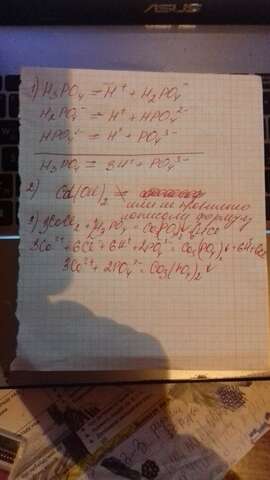 ASUS
1) H₃PO₄ = H⁺ + H₂PO₄⁻
H₂PO₄⁻ = H⁺ + HPO₄²⁻
HPO₄²⁻ = H⁺ + PO₄³⁻
H₃PO₄ = 3H⁺ + PO₄³⁻
2) (OH)₂
или неправильно
написали формулу
3) 3CaCl₂ + 2H₃PO₄ = Ca₃(PO₄)₂↓ + 6HCl
3Ca²⁺ + 6Cl⁻ + 6H⁺ + 2PO₄³⁻ = Ca₃(PO₄)₂↓ + 6H⁺ + 6Cl⁻
3Ca²⁺ + 2PO₄³⁻ = Ca₃(PO₄)₂↓